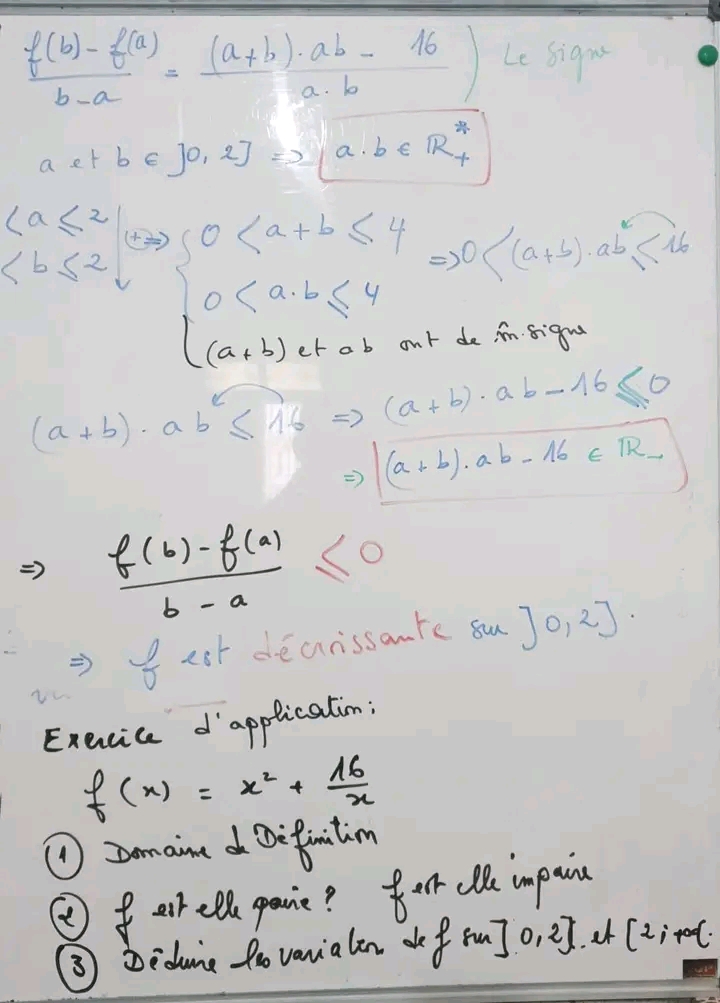 f(b) - f(a) / b - a = (a+b).ab - 16 / a.b ) Le signe
a et b ∈ ]0, 2] => a.b ∈ ℝ*₊
< a ≤ 2 (+) => { 0 < a + b ≤ 4
< b ≤ 2 0 < a.b ≤ 4 => 0 < (a+b).ab ≤ 16
(a+b) et ab ont de m̂ signe
(a+b).ab ≤ 16 => (a+b).ab - 16 ≤ 0
=> (a+b).ab - 16 ∈ ℝ₋
=> f(b) - f(a) / b - a ≤ 0
=> f est décroissante sur ]0, 2].
Exercice d'application:
f(x) = x² + 16/x
① Domaine de Définition
② f est elle paire ? f est elle impaire
③ Déduire les variation de f sur ]0, 2]. et [2; +∞[.